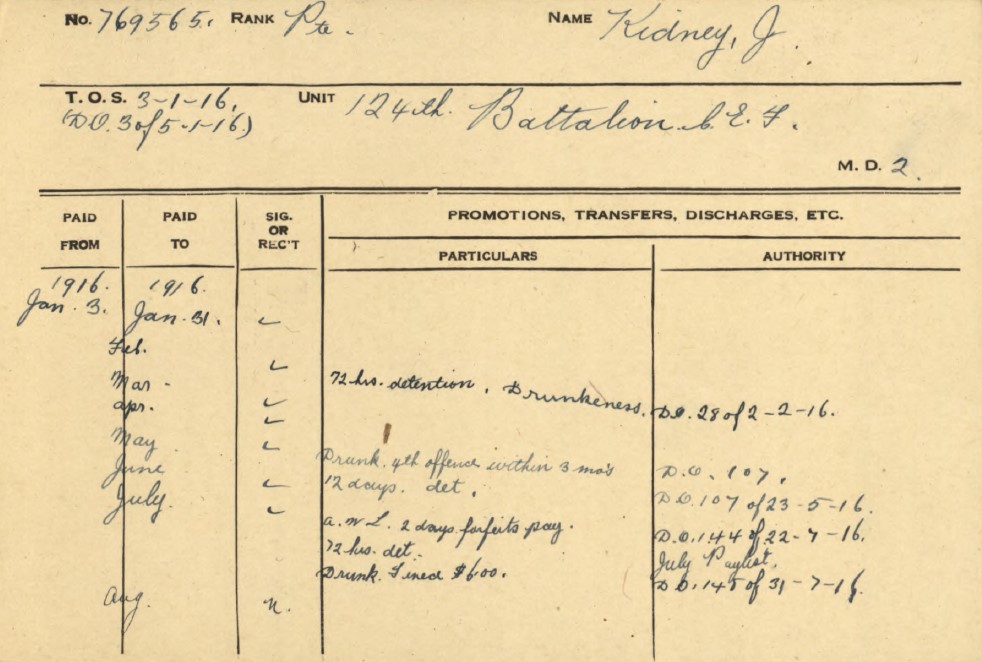 No. 769565. RANK Pte. NAME Kidney, J.
T.O.S. 3-1-16. UNIT 124th. Battalion. C.E.F.
(D.O. 3 of 5-1-16.)
M. D. 2.
PAID FROM PAID TO SIG. OR REC'T PROMOTIONS, TRANSFERS, DISCHARGES, ETC.
PARTICULARS AUTHORITY
1916. 1916.
Jan. 3. Jan. 31. ✓
Feb. ✓
Mar - ✓ 72 hrs. detention, Drunkeness. D.O. 28 of 2-2-16.
Apr. ✓
May ✓
June ✓ Drunk. 4th offence within 3 mos D.O. 107.
July. ✓ 12 days. det. D.O. 107 of 23-5-16.
a.w.L. 2 days forfeits pay. D.O. 144 of 22-7-16.
72 hrs. det. July Paylist.
Drunk. Fined $6.00. D.O. 145 of 31-7-16.
Aug. n.